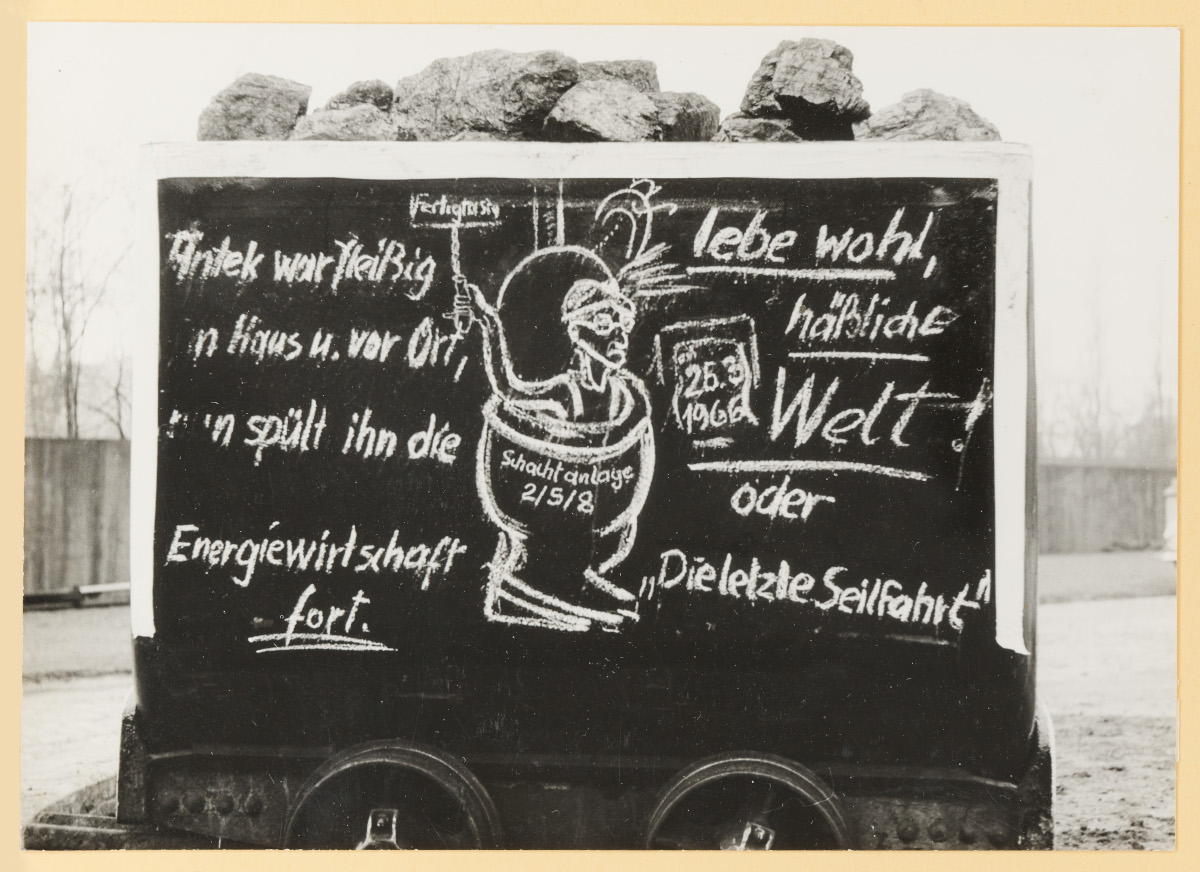 Antek war fleißig
in Haus u. vor Ort,
nun spült ihn die
Energiewirtschaft
fort.
Schachtanlage
2/5/8
25.3
1966
lebe wohl,
häßliche
Welt!
oder
„Die letzte Seilfahrt"